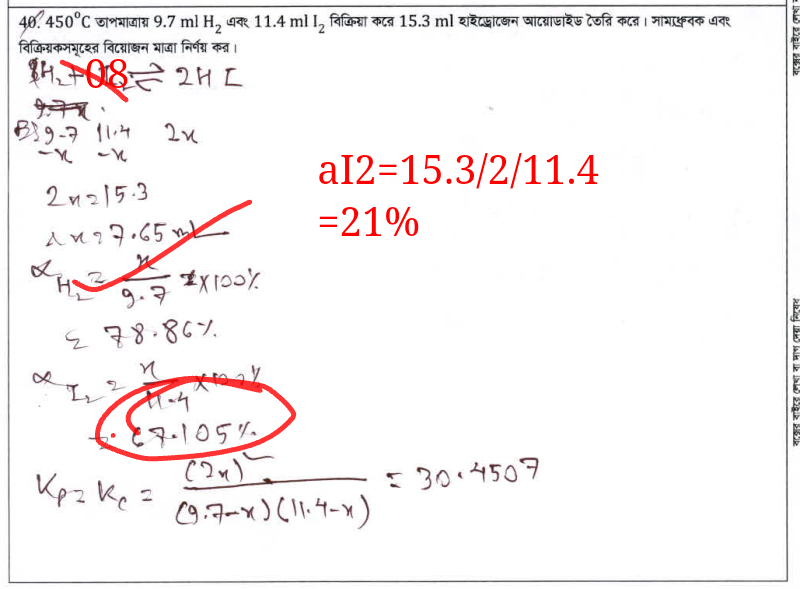 40. 450°C তাপমাত্রায় 9.7 ml H₂ এবং 11.4 ml I₂ বিক্রিয়া করে 15.3 ml হাইড্রোজেন আয়োডাইড তৈরি করে। সাম্যধ্রুবক এবং
বিক্রিয়কসমূহের বিয়োজন মাত্রা নির্ণয় কর।
H₂ + ⇌ 2HI
08
9.7 11.4 2x
-x -x
2x = 15.3
x = 7.65 ml
αH₂ = x/9.7 × 100%
= 78.86%
αI₂ = x/11.4 × 100%
= 67.105%
Kp = Kc = (2x)²/(9.7-x)(11.4-x) = 30.4507
aI2=15.3/2/11.4
=21%